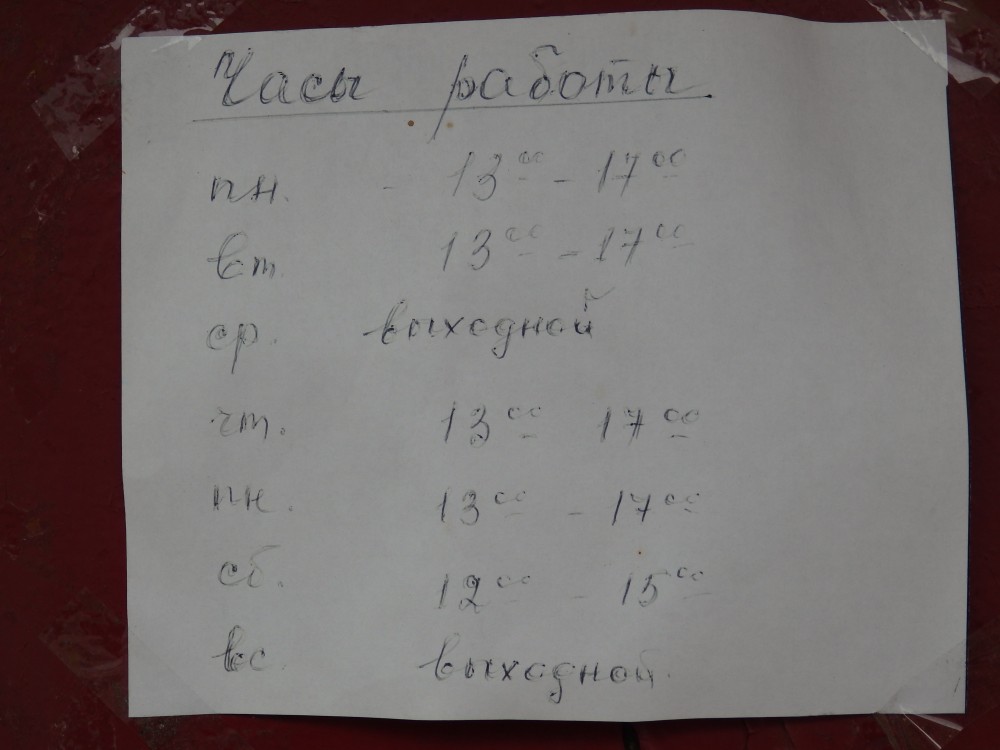 Часы работы.
пн. - 13⁰⁰ - 17⁰⁰
вт. 13⁰⁰ - 17⁰⁰
ср. выходной
чт. 13⁰⁰ 17⁰⁰
пн. 13⁰⁰ - 17⁰⁰
сб. 12⁰⁰ - 15⁰⁰
вс. выходной.